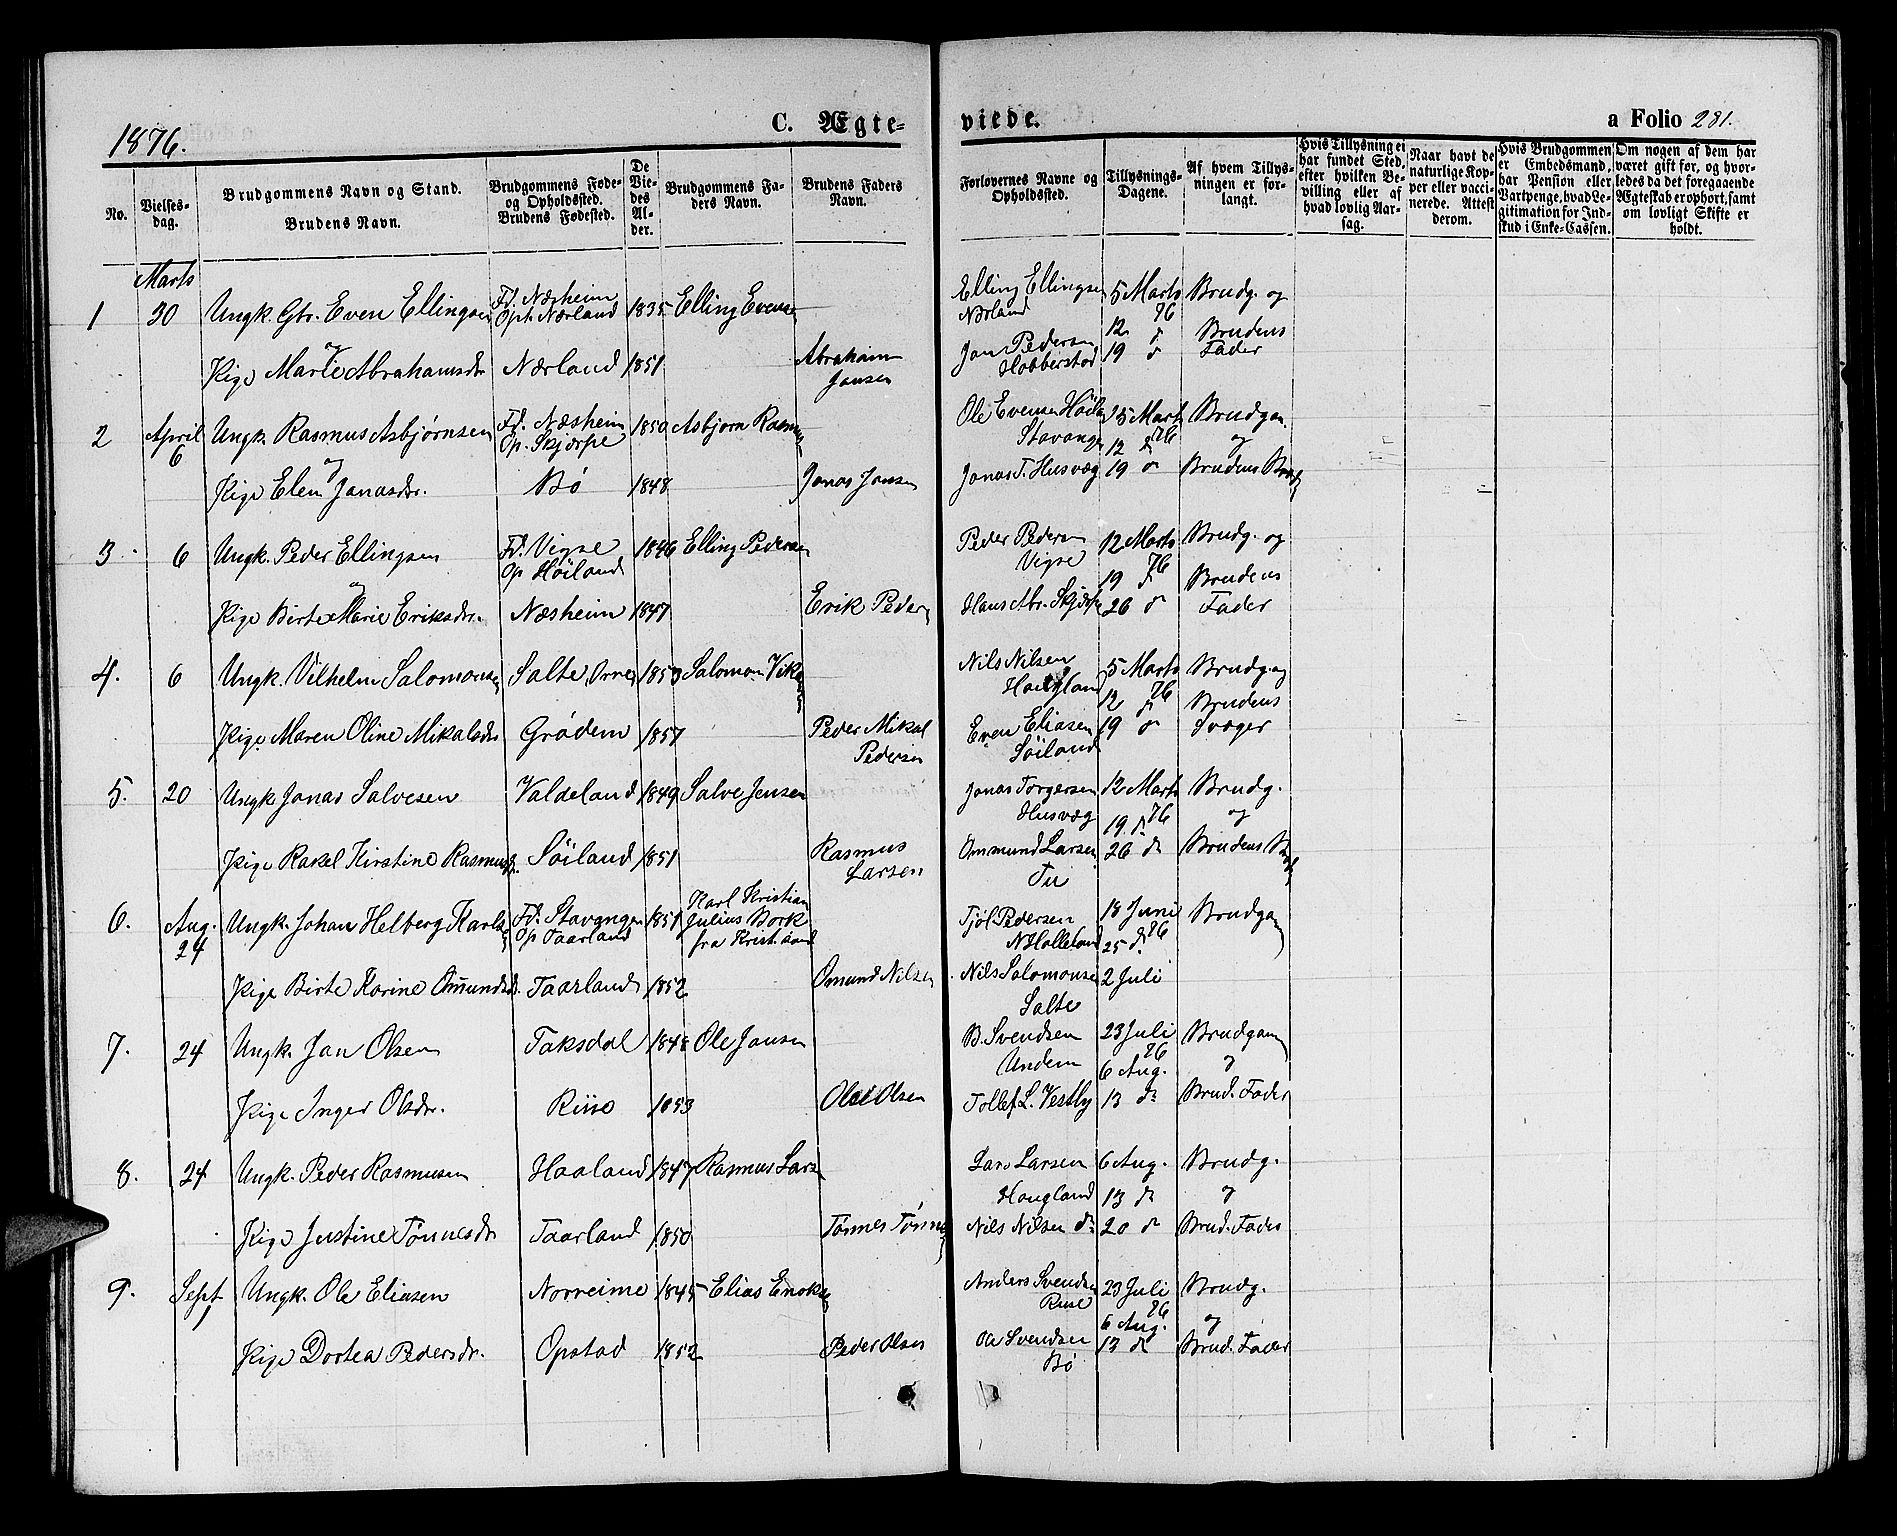 1876.
C. Ægte-
viede.
a Folio 281.
No.
Vielses-
dag.
Brudgommens Navn og Stand.
Brudens Navn.
Brudgommens Føde-
og Opholdssted.
Brudens Fødested.
De
Vie-
des
Al-
der.
Brudgommens Fa-
ders Navn.
Brudens Faders
Navn.
Forlovernes Navne og
Opholdssted.
Tillysnings-
Dagene.
Af hvem Tillys-
ningen er for-
langt.
Hvis Tillysning ei
har fundet Sted,
efter hvilken Be-
villing eller af
hvad lovlig Aar-
sag.
Naar havt de
naturlige Kop-
per eller vacci-
nerede. Attest
derom.
Hvis Brudgommen
er Embedsmand,
har Pension eller
Vartpenge, hvad Le-
gitimation for Ind-
skud i Enke-Cassen.
Om nogen af dem har
været gift før, og hvor-
ledes da det foregaaende
Ægteskab er ophørt, samt
om lovligt Skifte er
holdt.
Marts
1 30 Ungk. Gbr. Even Ellingsen Fd. Næsheim
Oph. Nærland 1835 Elling Evensen
Elling Ellingsen
Nærland
5 Marts 76 Brudg. og
12 d Brudens
og
Pige Marie Abrahamsdr. Nærland 1851 Abraham
Jansen
Jan Pedersen
Hobberstad
19 d Fader
2 April
6
Ungk. Rasmus Asbjørnsen Fd. Næsheim
Op. Skjærpe 1850 Asbjørn Rasmus
Ole Evensen Høiland
Stavanger
Marts 76 Brudgom
12 d og
og
Pige Elen Janasdr. Bø 1848 Jonas Jansen
Jonas T. Husvæg 19 d Brudens Broder
3. 6 Ungk. Peder Ellingsen Fd. Vigse
Op Høiland 1846 Elling Pedersen
Peder Pedersen
Vigse
12 Marts 76 Brudg. og
19 d Brudens
og
Pige Birte Marie Eriksdr. Næsheim 1847 Erik Peder
Hans Abr. Skjærpe 26 d Fader
4. 6 Ungk. Vilhelm Salomonsen Salte, Orre 1853 Salomon
Nils Nilsen
Haugland
5 Marts 76 Brudg. og
12 d Brudens
Pige Maren Oline Mikalsdr Grødem 1857 Peder Mikal
Pedersen
Even Eliasen
Søiland
19 d Svoger
5. 20 Ungk Jonas Salvesen Valdeland 1849 Salve Jensen
Jonas Torgersen
Husvæg
12 Marts 76 Brudg.
19 d og
Pige Rakel Kirstine Rasmusdr. Søiland 1851 Rasmus
Larsen
Ommund Larsen
Tu
26 d Brudens Broder
6. Aug.
24
Ungk. Johan Helberg Karlsen Fd. Stavanger
Op Taarland 1851 Karl Kristian
Julius Bork
fra Kristiand
Tjøl Pedersen
N Holleland
18 Juni 76 Brudgom
25 d
Pige Birte Karine Omundsdr. Taarland 1852 Omund Nilsen
Nils Salomonsen
Salte
2 Juli
7. 24 Ungk. Jan Olsen Taksdal 1848 Ole Jansen
B. Svendsen
Undem
23 Juli 76 Brudgom
6 Aug. og
Pige Inger Olsdr. Riise 1853 Ole Olsen
Tollef L. Vestly 13 d Brud. Fader
8. 24 Ungk. Peder Rasmusen Haaland 1847 Rasmus Lars
Lars Larsen
Haugland
6 Aug. Brudg.
13 d og
Pige Justine Tønnesdr Taarland 1850 Tønnes Tønnes
Nils Nilsen d 20 d Brud. Fader
9. Sept
1
Ungk. Ole Eliasen Norreime 1845 Elias Enoks
Anders Svendsen
Riise
23 Juli 76 Brudg.
6 Aug. og
Pige Dortea Pedersdr. Opstad 1852 Peder Olsen
Ole Svendsen
Bø
13 d Brud. Fader